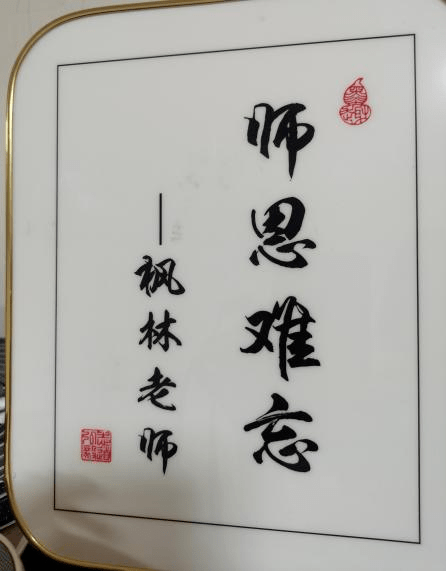 师恩难忘
—枫林老师